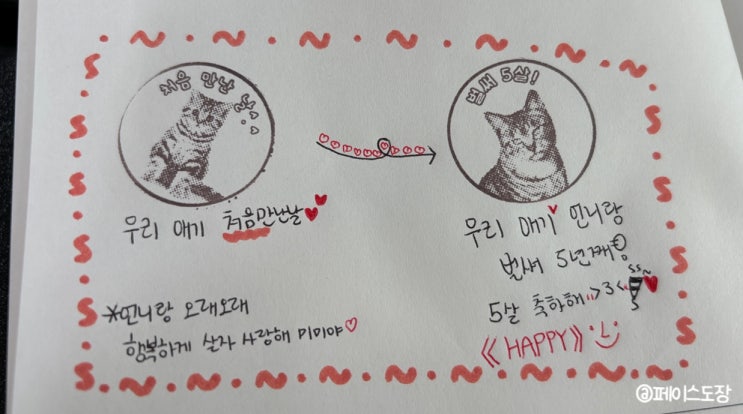 처음 만난 날
벌써 5살!
우리 애기 처음만난날
우리 애기 언니랑
벌써 5년째
5살 축하해 >3<
*언니랑 오래오래
행복하게 살자 사랑해 미미야
《HAPPY》
@페이스도장